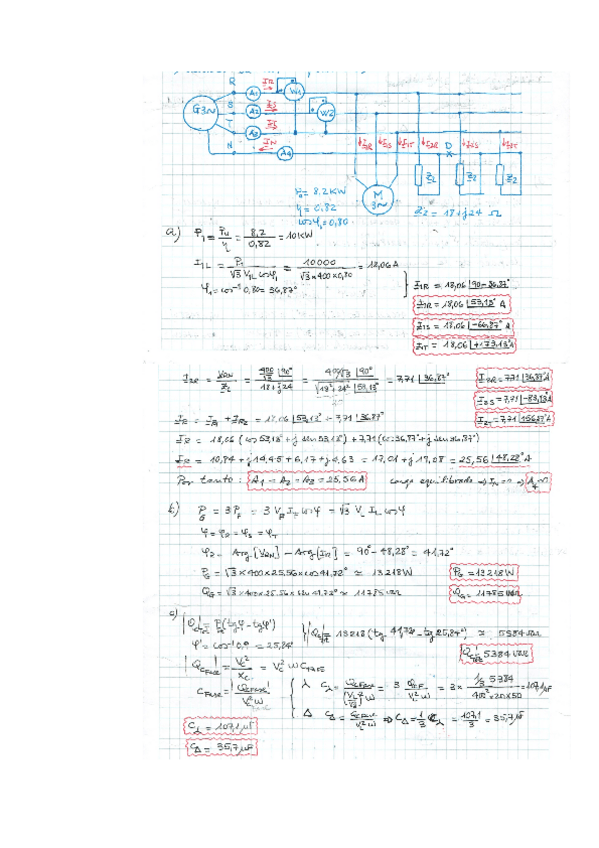 R A1 IR W1
G3~ S A2 IS W2
T A3 IS
N IN A4
I1R I1S I1T I2R D I2S I2T
M 3~ Z2 Z2 Z2
Pu = 8.2KW
η = 0,82
cosφ1 = 0,80
Z2 = 18+j24 Ω
a) P1 = Pu/η = 8,2/0,82 = 10KW
I1L = P1/(√3 VL cosφ1) = 10000/(√3×400×0,80) = 18,06A
φ1 = cos⁻¹ 0,80 = 36,87°
I1R = 18,06 |90-36,87°
I1R = 18,06 |53,13° A
I1S = 18,06 |-66,87° A
I1T = 18,06 |+173,13° A
I2R = VRN/Z2 = (400/√3 |90°)/(18+j24) = (400/√3 |90°)/(√(18²+24²) |53,13°) = 7,71 |36,87°
I2R = 7,71 |36,87° A
I2S = 7,71 |-83,13° A
I2T = 7,71 |156,87° A
IR = I1R + I2R = 18,06 |53,13° + 7,71 |36,87°
IR = 18,06 (cos53,13° + j sen53,13°) + 7,71 (cos36,87° + j sen36,87°)
IR = 10,84 + j14,45 + 6,17 + j4,63 = 17,01 + j19,08 = 25,56 |48,28° A
Por tanto: A1 = A2 = A3 = 25,56A carga equilibrada ⇒ IN = 0 ⇒
b) PG = 3PF = 3 VF IF cosφ = √3 VL IL cosφ
φ = φR = φS = φT
φR = Arg[VRN] - Arg[IR] = 90° - 48,28° = 41,72°
PG = √3×400×25,56×cos41,72° ≃ 13218W
PG = 13218W
QG = √3×400×25,56×sen41,72° ≃ 11785
QG = 11785
c) = P(tgφ - tgφ') = 13218 (tg 41,72° - tg 25,84°) ≃ 5384
φ' = cos⁻¹ 0,9 = 25,84°
5384
|QCFASE| = VC²/XC = VC² ω CFASE
CFASE = |QCFASE|/VC²ω
⅄ C⅄ = QCFASE/((VL/√3)² ω) = 3 = 3× (1/3 5384)/(400²×2π×50) = 107,1μF
Δ CΔ = QCFASE/VL²ω ⇒ CΔ = 1/3 C⅄ = 107,1/3 = 35,7μF
C⅄ = 107,1μF
CΔ = 35,7μF